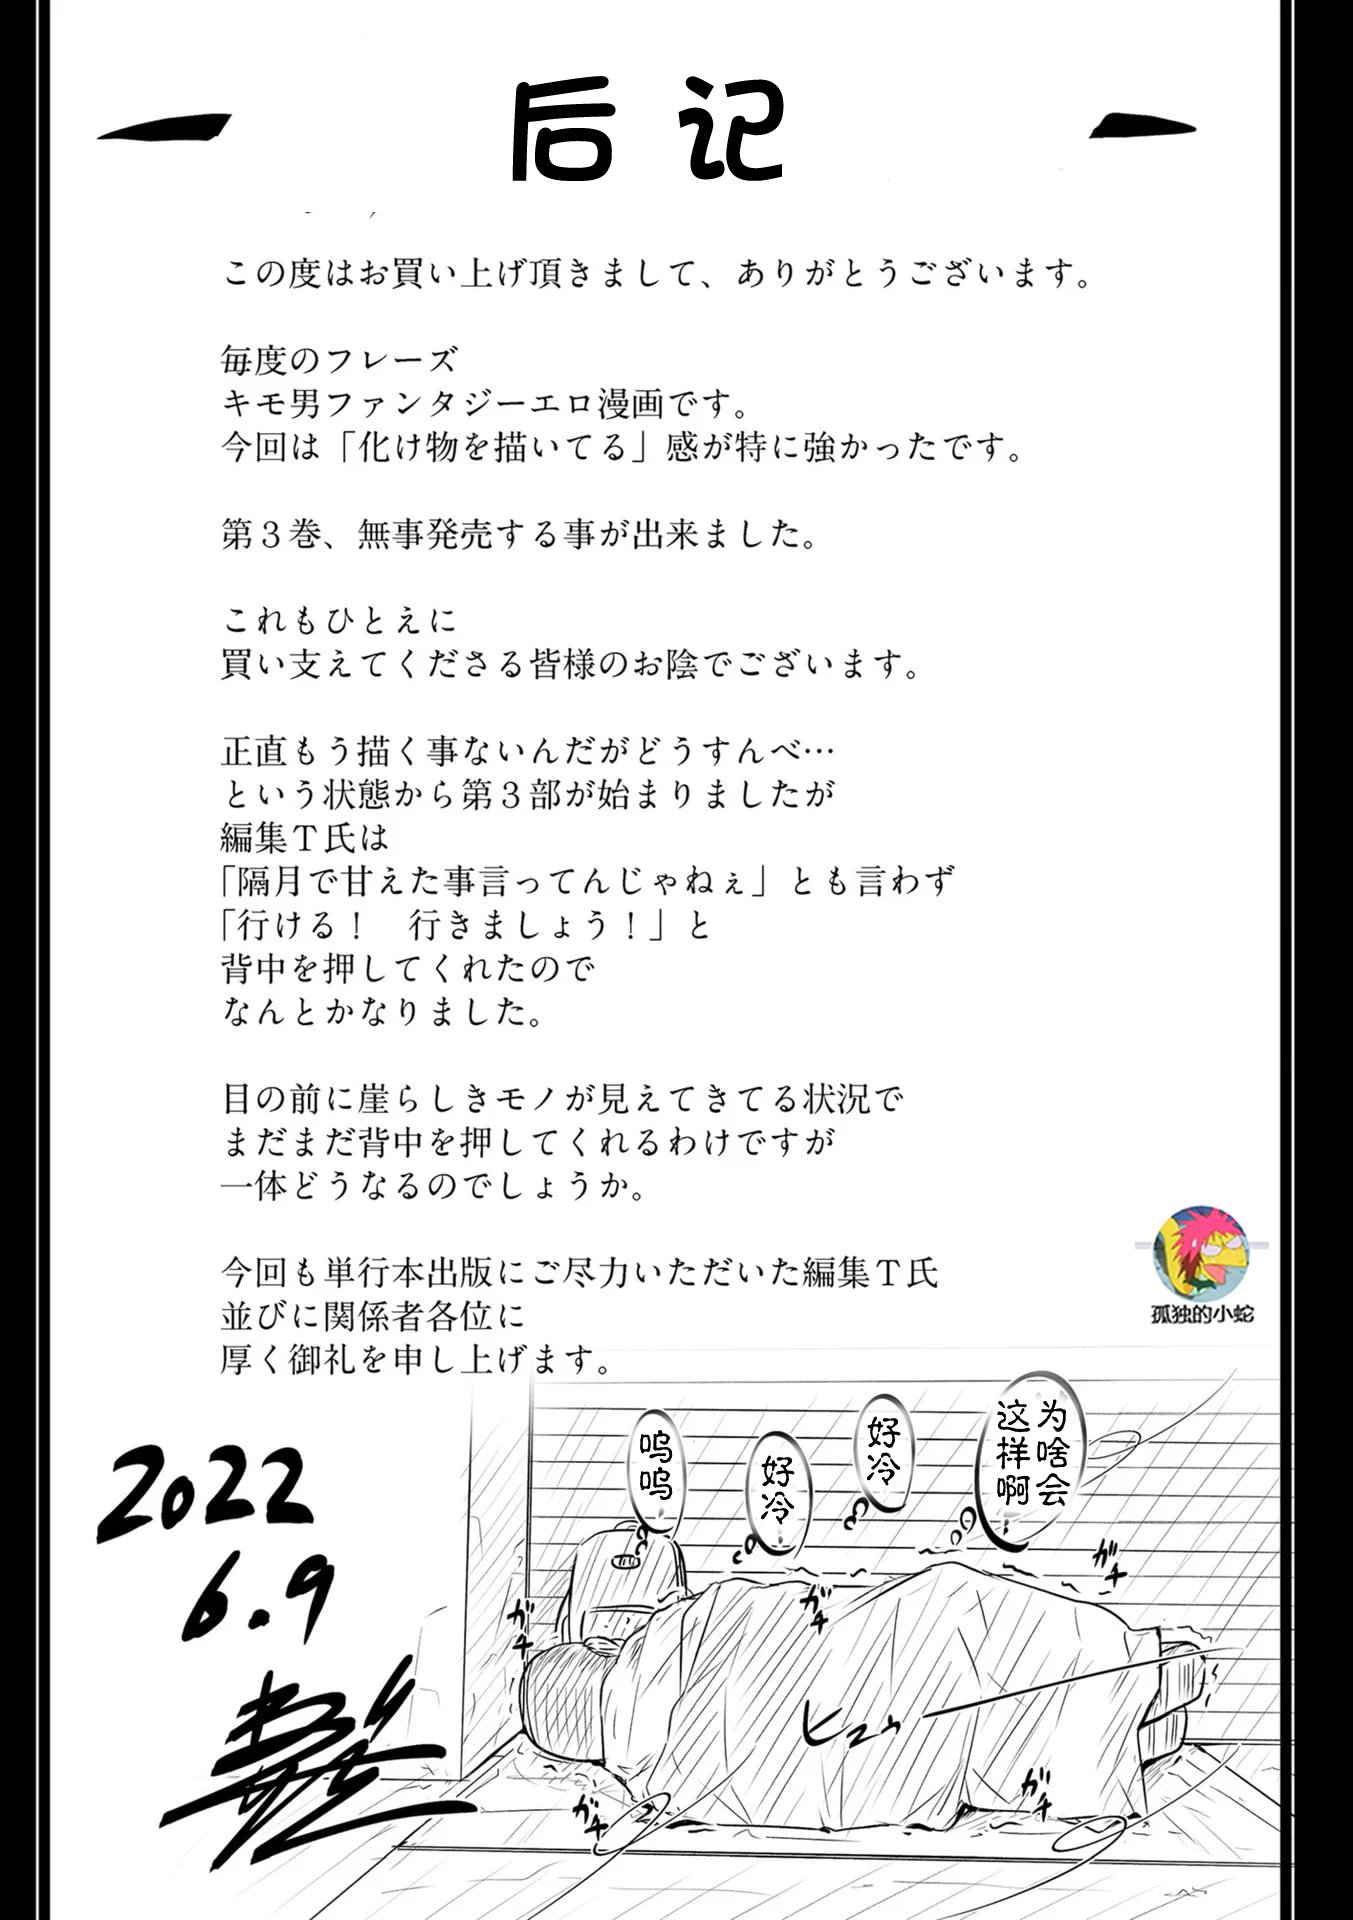 后记
この度はお買い上げ頂きまして、ありがとうございます。
毎度のフレーズ
キモ男ファンタジーエロ漫画です。
今回は「化け物を描いてる」感が特に強かったです。
第３巻、無事発売する事が出来ました。
これもひとえに
買い支えてくださる皆様のお陰でございます。
正直もう描く事ないんだがどうすんべ…
という状態から第３部が始まりましたが
編集Ｔ氏は
「隔月で甘えた事言ってんじゃねぇ」とも言わず
「行ける！　行きましょう！」と
背中を押してくれたので
なんとかなりました。
目の前に崖らしきモノが見えてきてる状況で
まだまだ背中を押してくれるわけですが
一体どうなるのでしょうか。
今回も単行本出版にご尽力いただいた編集Ｔ氏
並びに関係者各位に
厚く御礼を申し上げます。
孤独的小蛇
2022
6.9
为啥会
这样啊
好冷
好冷
呜呜
ガチ
ガチ
ガチ
ヒュゥ
ガチ
ガチ